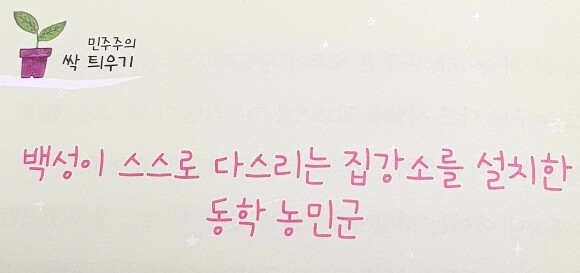 민주주의
싹 틔우기
백성이 스스로 다스리는 집강소를 설치한
동학 농민군